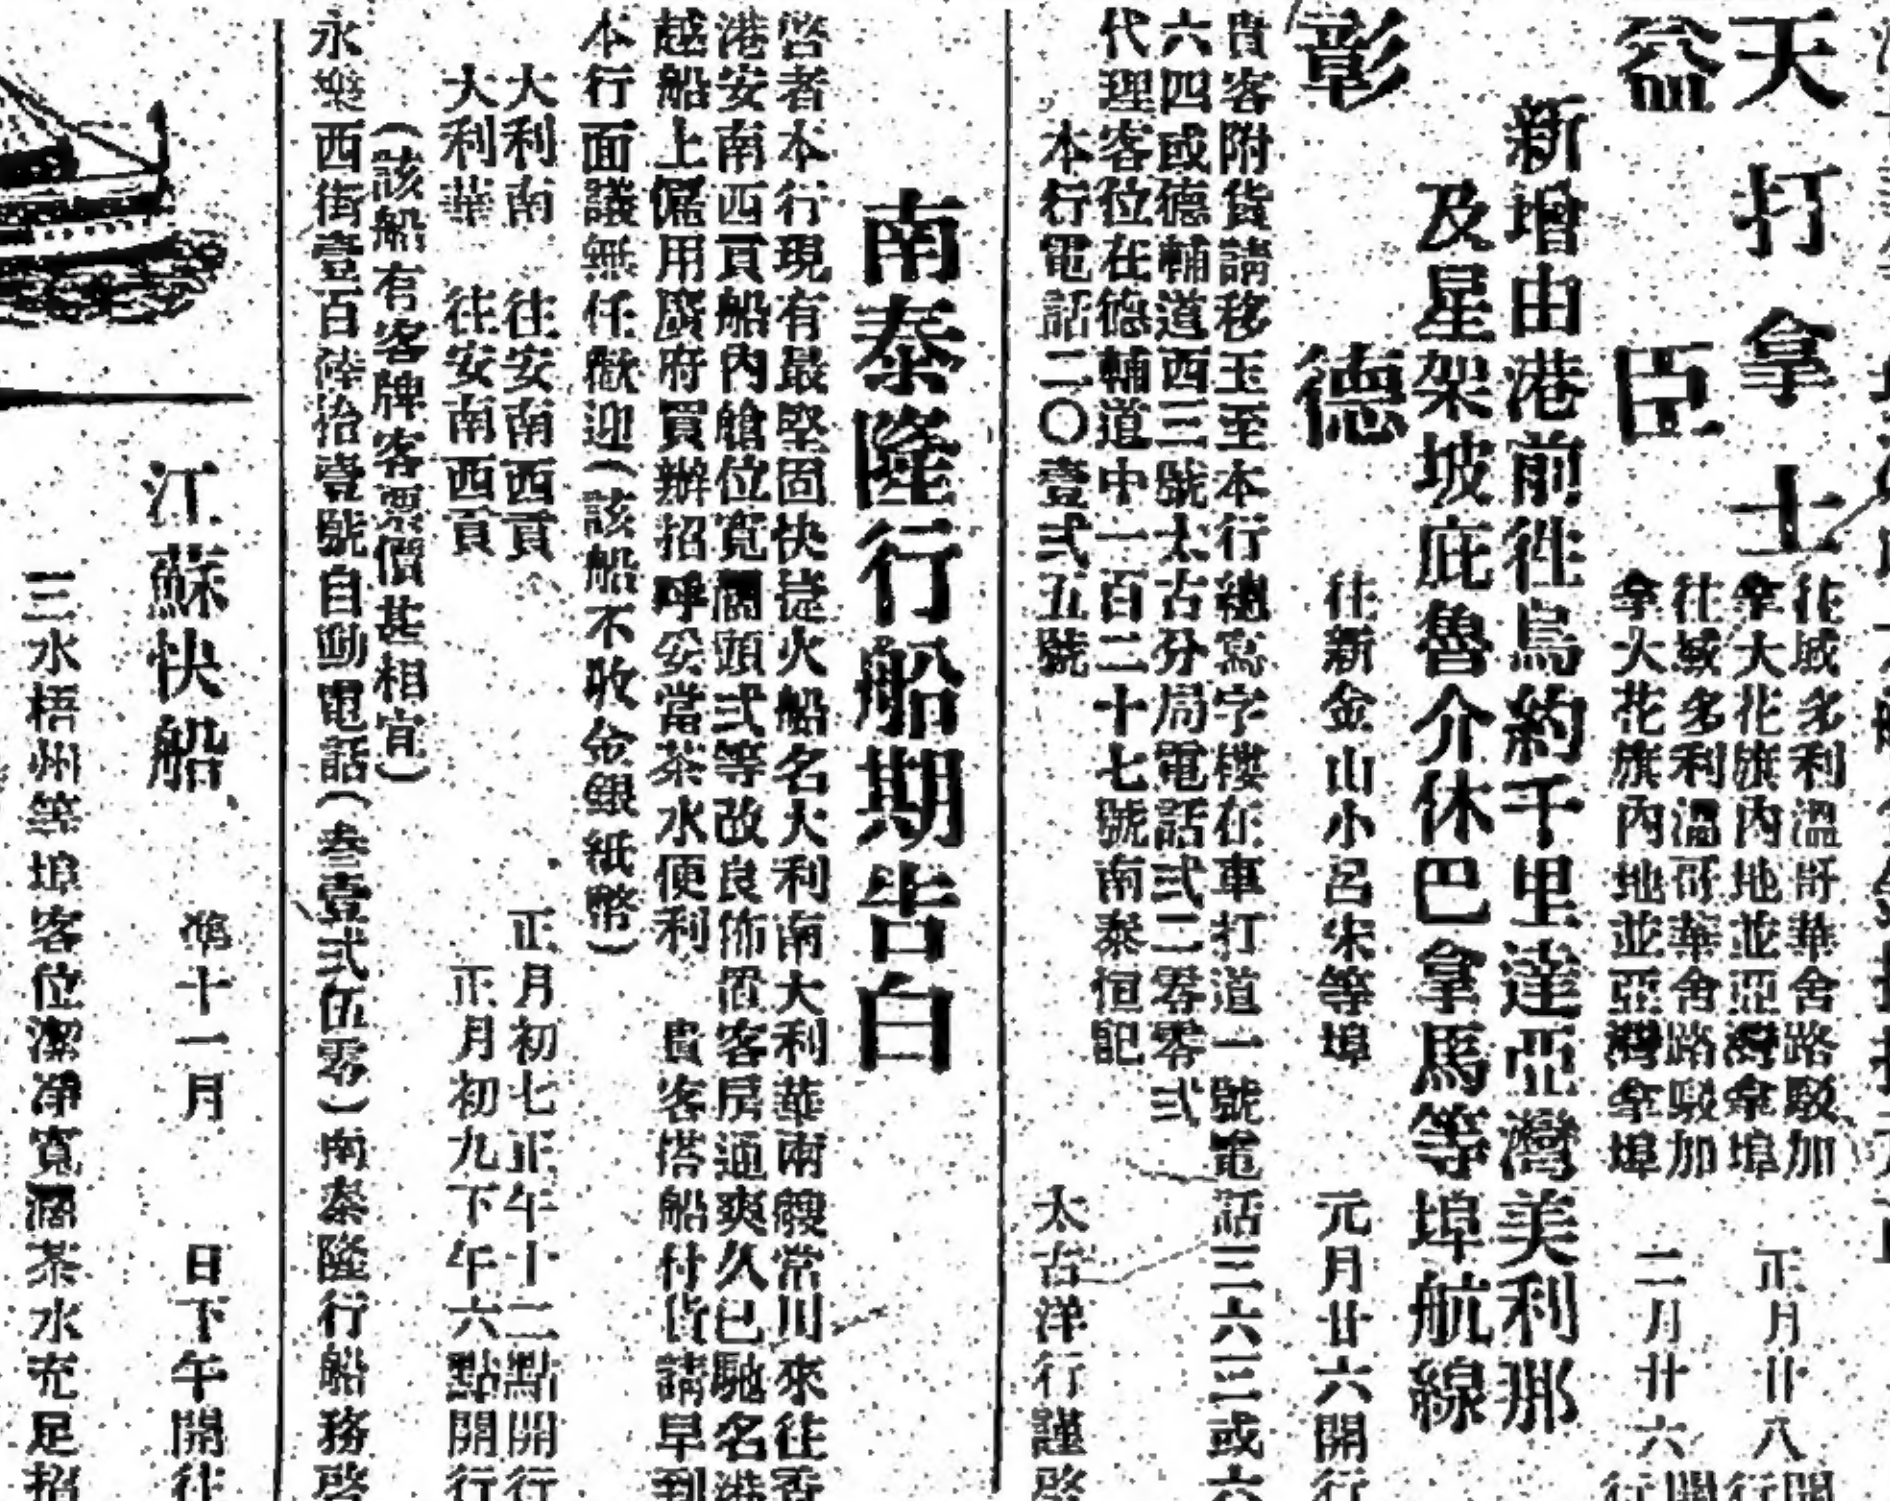 天打拿士
往域多利溫哥華舍路駁加
拿大花旗內地並亞灣拿埠
正月廿八開行
益臣
往域多利溫哥華舍路駁加
拿大花旗內地並亞灣拿埠
二月廿六開行
新增由港前往烏約千里達亞灣美利那
及星架坡庇魯介休巴拿馬等埠航線
彰德
往新金山小呂宋等埠
元月廿六開行
貴客附貨請移玉至本行總寫字樓在車打道一號電話三六三或六
六四或德輔道西三號太古分局電話弍二零零弍
代理客位在德輔道中一百二十七號南泰恒記
本行電話二〇壹弍五號
太古洋行謹啓
南泰隆行船期告白
啓者本行現有最堅固快捷火船名大利南大利華兩艘常川來往香
港安南西貢船內艙位寬闊頭弍等改良佈置客房通爽久已馳名港
越船上僱用廣府買辦招呼妥當茶水便利 貴客搭船付貨請早到
本行面議無任歡迎(該船不收金銀紙幣)
大利南 往安南西貢 正月初七正午十二點開行
大利華 往安南西貢 正月初九下午六點開行
(該船有客牌客票價甚相宜)
永樂西街壹百陸拾壹號自動電話(叁壹弍伍零)南泰隆行船務啓
江蘇快船
準十一月 日下午開往
三水梧州等埠客位潔淨寬濶茶水充足招